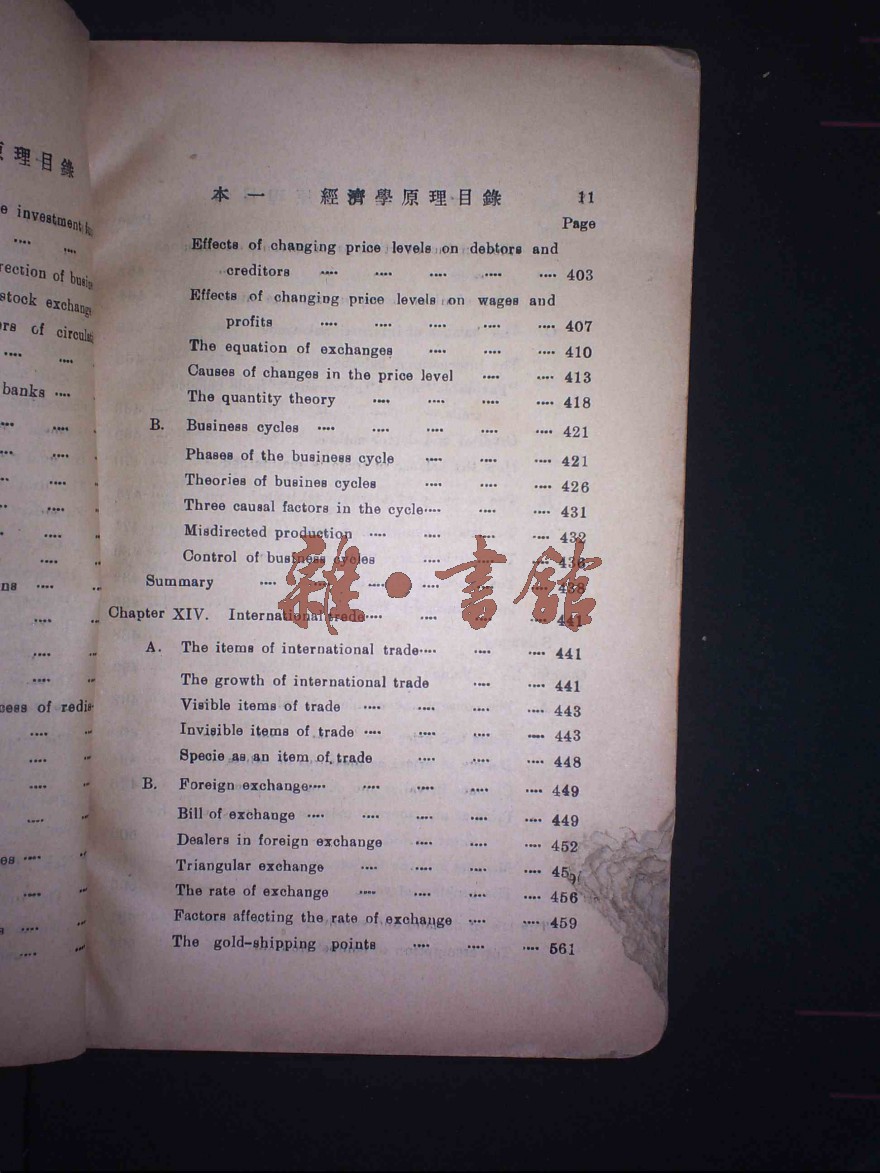 理目錄
e investment
rection of
stock exchang
rs of
banks ....
ns ....
cess of redis-
es ....
s ....
本一 經濟學原理目錄 11
Page
Effects of changing price levels on debtors and
creditors .... .... .... .... .... 403
Effects of changing price levels on wages and
profits .... .... .... .... .... 407
The equation of exchanges .... .... .... 410
Causes of changes in the price level .... .... 413
The quantity theory .... .... .... .... 418
B. Business cycles .... .... .... .... .... 421
Phases of the business cycle .... .... .... 421
Theories of busines cycles .... .... .... 426
Three causal factors in the cycle.... .... .... 431
Misdirected production .... .... .... .... 432
Control of business cycles .... .... .... 436
Summary .... .... .... .... .... .... 438
Chapter XIV. International trade.... .... .... .... 441
A. The items of international trade.... .... .... 441
The growth of international trade .... .... 441
Visible items of trade .... .... .... .... 443
Invisible items of trade .... .... .... .... 443
Specie as an item of trade .... .... .... 448
B. Foreign exchange.... .... .... .... .... 449
Bill of exchange .... .... .... .... .... 449
Dealers in foreign exchange .... .... .... 452
Triangular exchange .... .... .... .... 45
The rate of exchange .... .... .... .... 456
Factors affecting the rate of exchange .... .... 459
The gold-shipping points .... .... .... 561
雜·書館